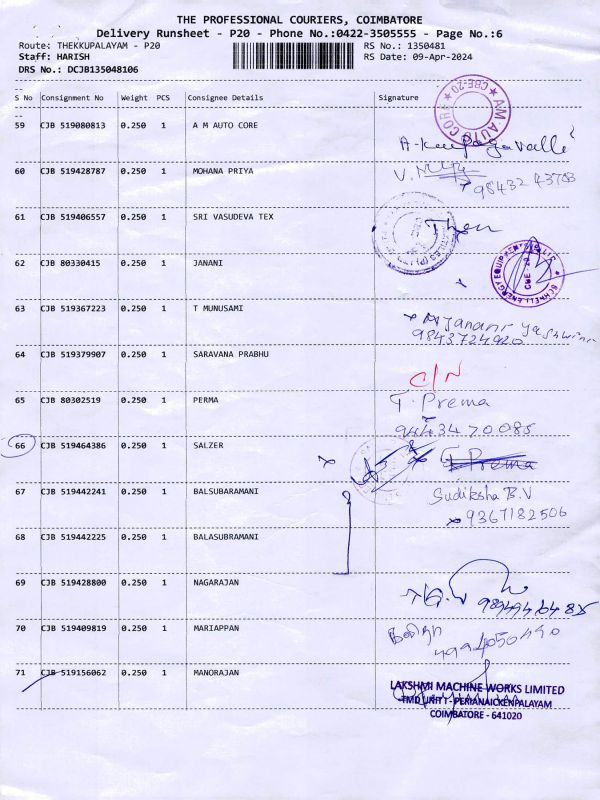 THE PROFESSIONAL COURIERS, COIMBATORE
Delivery Runsheet - P20 - Phone No.:0422-3505555 - Page No.:6
Route: THEKKUPALAYAM - P20
RS No.: 1350481
Staff: HARISH
RS Date: 09-Apr-2024
DRS No.: DCJB135048106
S No Consignment No Weight PCS Consignee Details Signature
CBE-20
AM AUTO CORE
59 CJB 519080813 0.250 1 A M AUTO CORE
60 CJB 519428787 0.250 1 MOHANA PRIYA
98432 43783
61 CJB 519406557 0.250 1 SRI VASUDEVA TEX
62 CJB 80330415 0.250 1 JANANI
CBE-20
63 CJB 519367223 0.250 1 T MUNUSAMI
Janani Yashwini
9843724920
64 CJB 519379907 0.250 1 SARAVANA PRABHU
C/N
65 CJB 80302519 0.250 1 PERMA
T. Prema
9443470085
66 CJB 519464386 0.250 1 SALZER
T Prema
67 CJB 519442241 0.250 1 BALSUBARAMANI
Sudiksha B.V
9367182506
68 CJB 519442225 0.250 1 BALASUBRAMANI
69 CJB 519428800 0.250 1 NAGARAJAN
70 CJB 519409819 0.250 1 MARIAPPAN
71 CJB 519156062 0.250 1 MANORAJAN
LAKSHMI MACHINE WORKS LIMITED
TMD UNIT I - PERIANAICKENPALAYAM
COIMBATORE - 641020